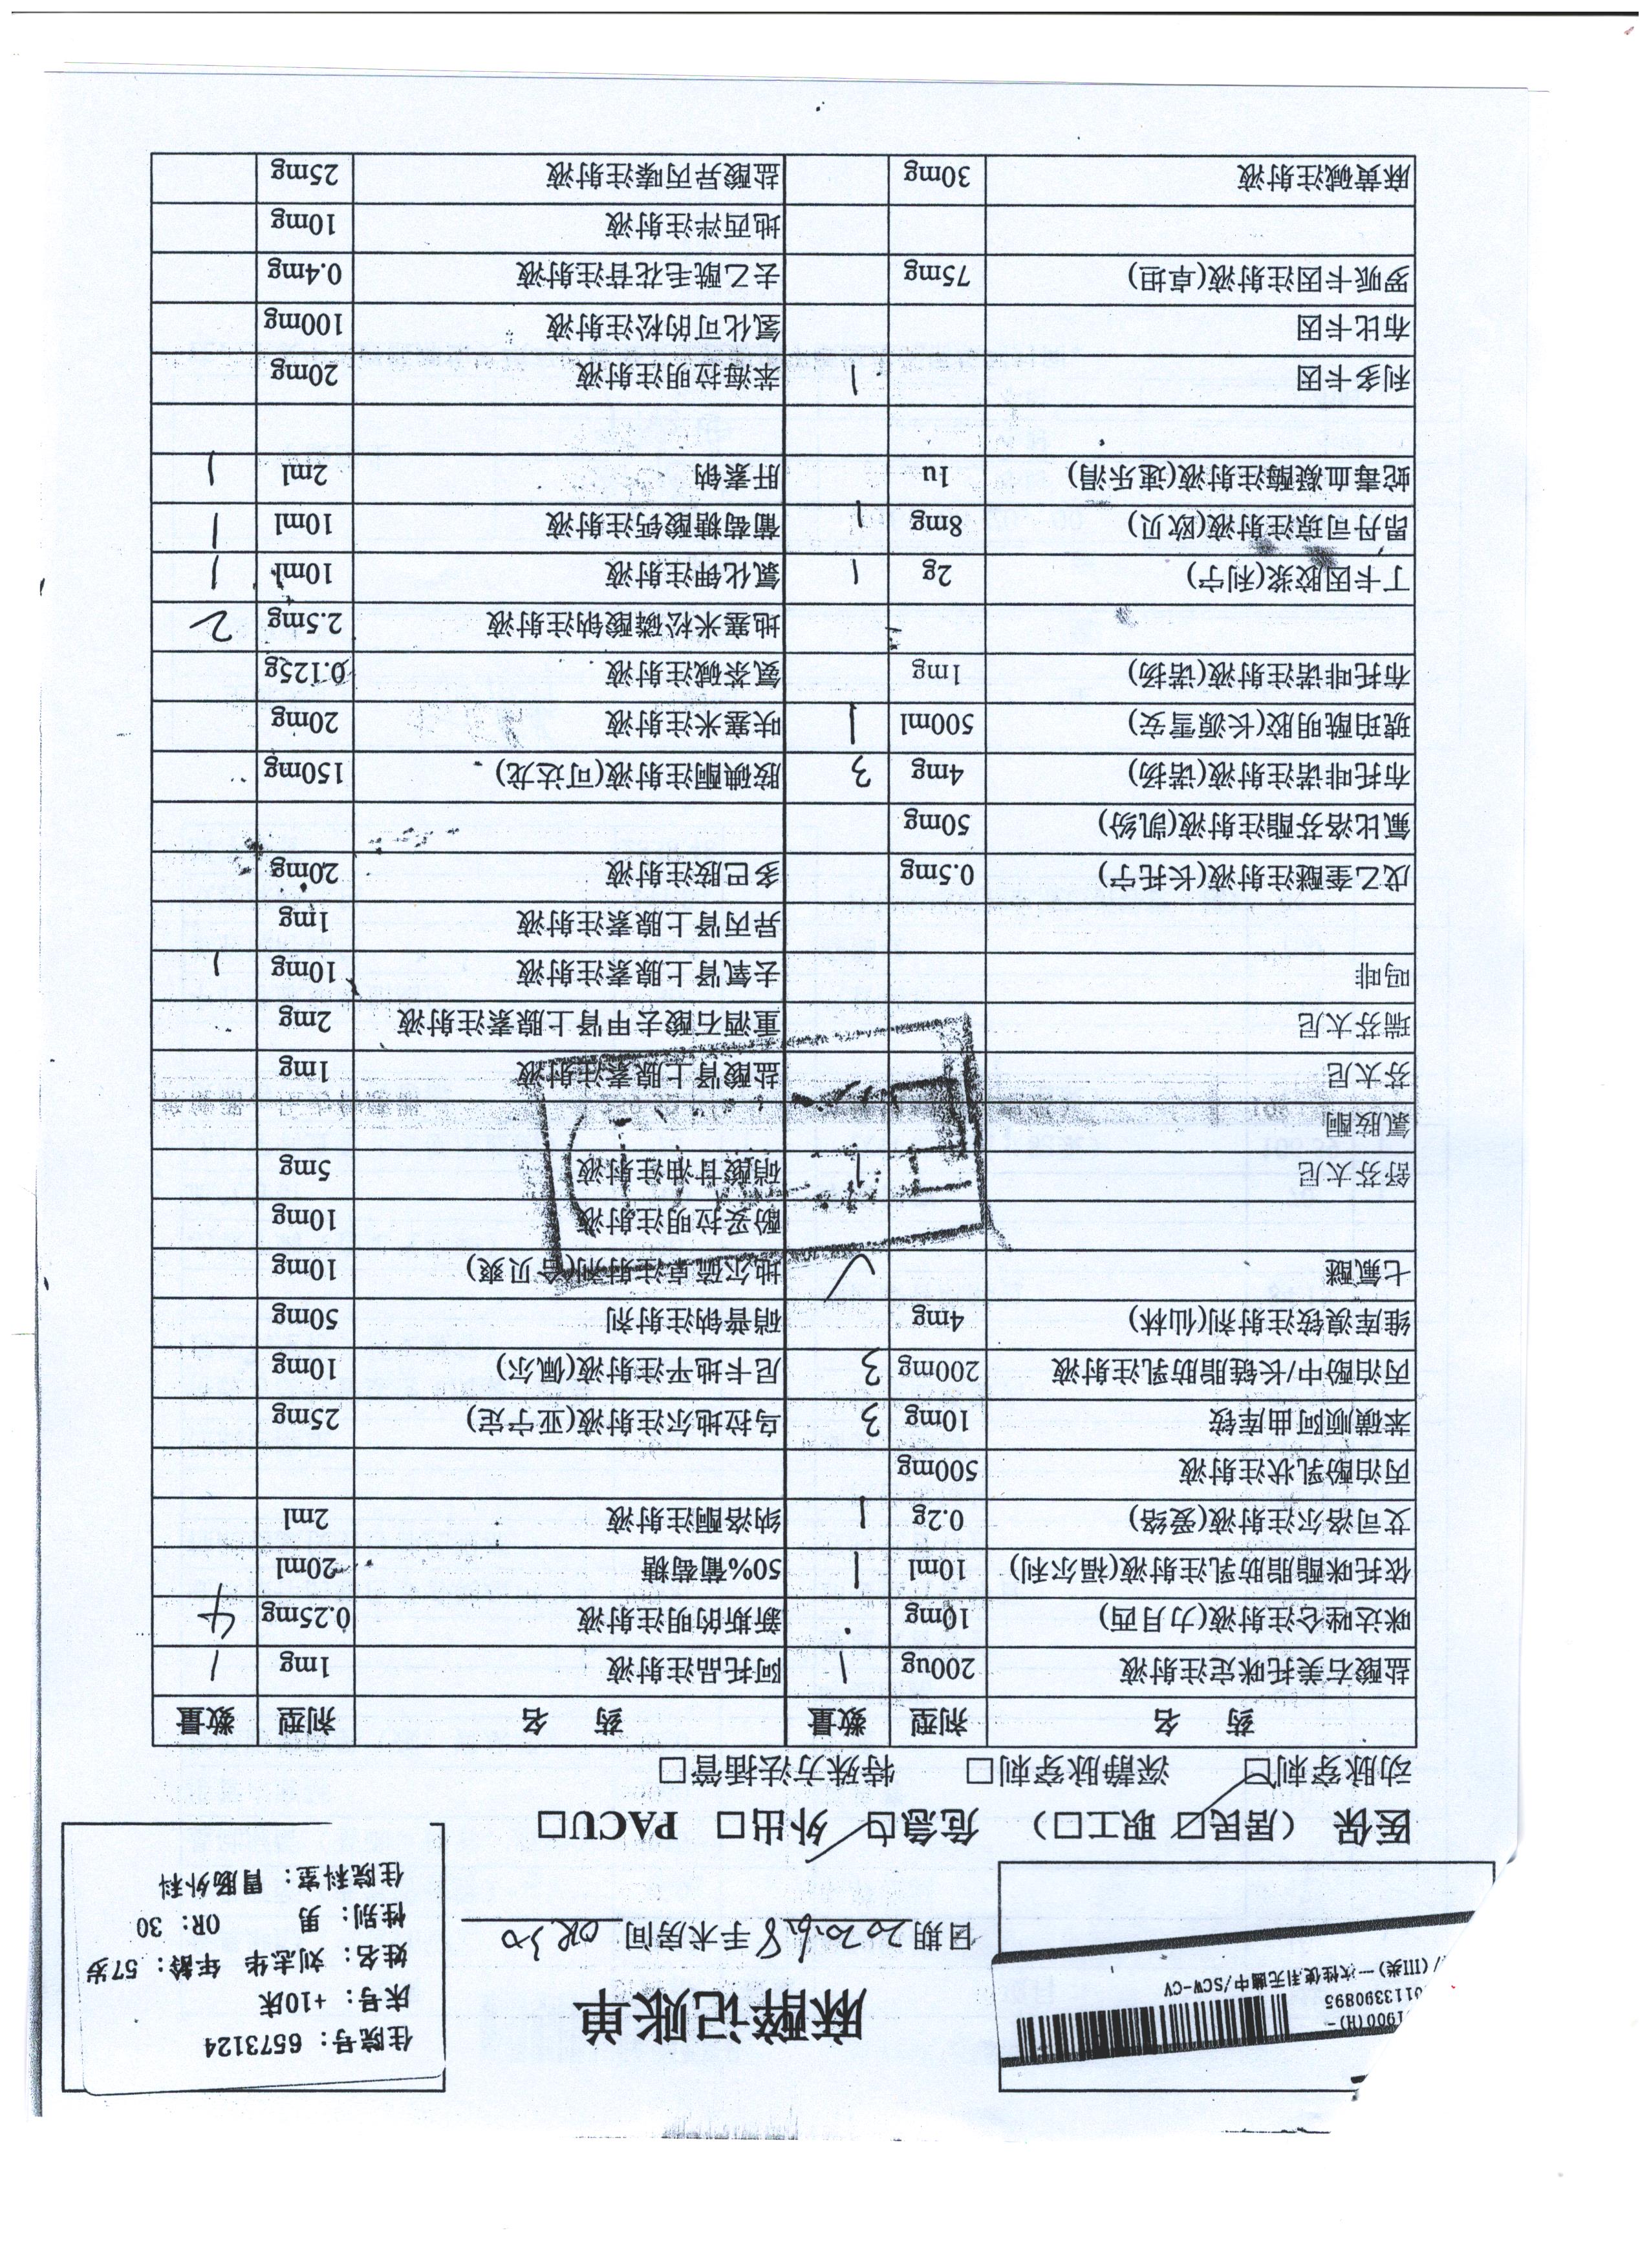 1900(H)-
0113390895
/(III类)一次性使用无菌中/SCW-CV
麻醉记账单
日期 2020.6.8 手术房间 OR30
住院号: 6573124
床号: +10床
姓名: 刘志华 年龄: 57岁
性别: 男 OR: 30
住院科室: 胃肠外科
医保 (居民☑ 职工□) 危急☑ 外出□ PACU□
动脉穿刺☑ 深静脉穿刺□ 特殊方法插管□
药 名 剂型 数量 药 名 剂型 数量
盐酸右美托咪定注射液 200ug 1 阿托品注射液 1mg 1
咪达唑仑注射液(力月西) 10mg 新斯的明注射液 0.25mg 4
依托咪酯脂肪乳注射液(福尔利) 10ml 1 50%葡萄糖 20ml
艾司洛尔注射液(爱络) 0.2g 1 纳洛酮注射液 2ml
丙泊酚乳状注射液 500mg
苯磺顺阿曲库铵 10mg 3 乌拉地尔注射液(亚宁定) 25mg
丙泊酚中/长链脂肪乳注射液 200mg 3 尼卡地平注射液(佩尔) 10mg
维库溴铵注射剂(仙林) 4mg 硝普钠注射剂 50mg
七氟醚 ✓ 地尔硫卓注射剂(合贝爽) 10mg
酚妥拉明注射液 10mg
舒芬太尼 硝酸甘油注射液 5mg
氯胺酮
芬太尼 盐酸肾上腺素注射液 1mg
瑞芬太尼 重酒石酸去甲肾上腺素注射液 2mg
吗啡 去氧肾上腺素注射液 10mg 1
异丙肾上腺素注射液 1mg
戊乙奎醚注射液(长托宁) 0.5mg 多巴胺注射液 20mg
氟比洛芬酯注射液(凯纷) 50mg
布托啡诺注射液(诺扬) 4mg 3 胺碘酮注射液(可达龙) 150mg
琥珀酰明胶(长源雪安) 500ml 1 呋塞米注射液 20mg
布托啡诺注射液(诺扬) 1mg 氨茶碱注射液 0.125g
地塞米松磷酸钠注射液 2.5mg 2
丁卡因胶浆(利宁) 2g 1 氯化钾注射液 10ml 1
昂丹司琼注射液(欧贝) 8mg 1 葡萄糖酸钙注射液 10ml 1
蛇毒血凝酶注射液(速乐涓) 1u 肝素钠 2ml 1
利多卡因 1 苯海拉明注射液 20mg
布比卡因 氢化可的松注射液 100mg
罗哌卡因注射液(卓坦) 75mg 去乙酰毛花苷注射液 0.4mg
地西泮注射液 10mg
麻黄碱注射液 30mg 盐酸异丙嗪注射液 25mg